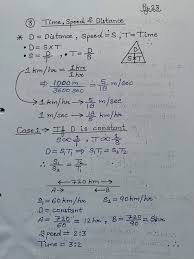 Pg 23
③ Time, Speed & Distance
* D = Distance, Speed = S, T = Time
• D = S×T
• S = D/T, T = D/S
D
S×T
1 km/hr = 1km/1hr
⇒ 1000 m/3600 sec ⇒ 5/18 m/sec
1 km/hr → 5/18 m/sec
Case 1 → If D is constant
S ∝ 1/T
D = S₁T₁ ⇒ D = S₂T₂
∴ S₁/S₂ = T₂/T₁
720 km
A B
S₁ = 60km/hr S₂ = 90km/hr
D = constant
A = 720/60 = 12hr, B = 720/90 = 8hr
Speed = 2:3
Time = 3:2